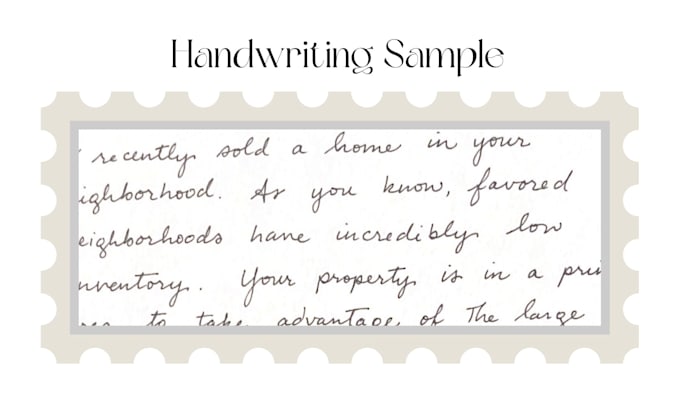 Handwriting Sample
recently sold a home in your
ighborhood. As you know, favored
eighborhoods have incredibly low
nventory. Your property is in a pri
to take advantage of The large